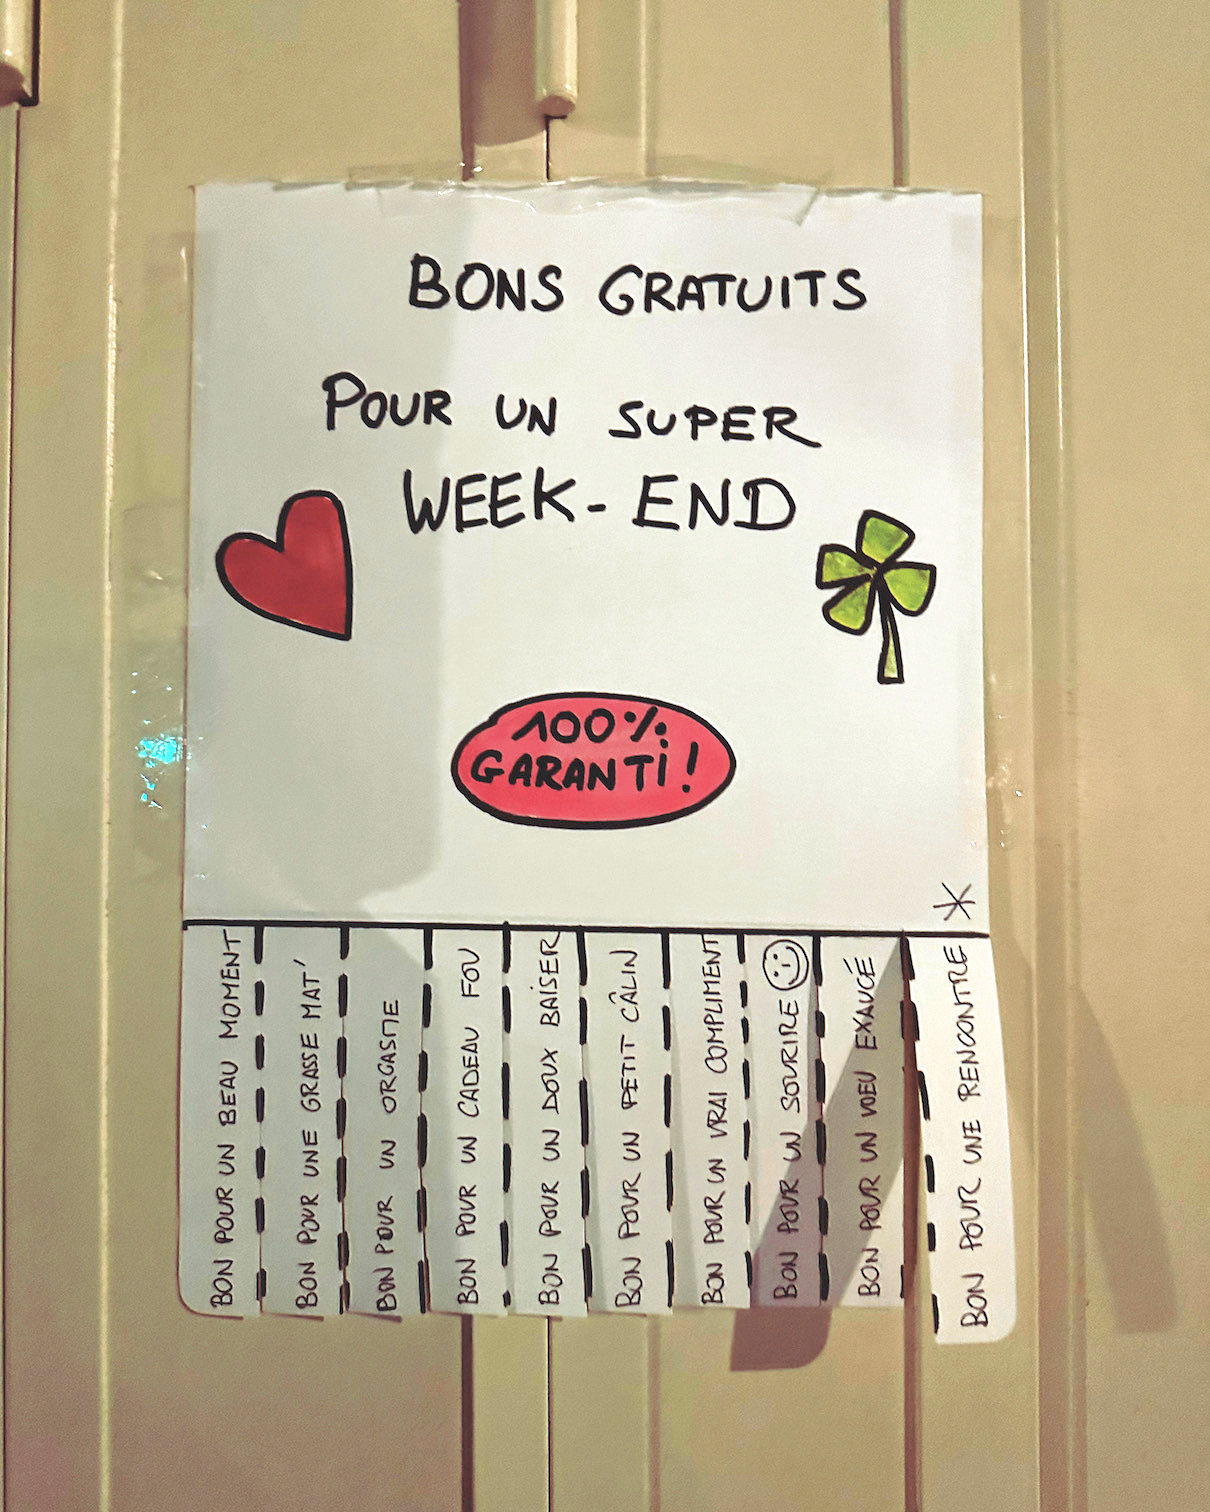 BONS GRATUITS
POUR UN SUPER
WEEK-END
100%
GARANTI !
*
BON POUR UN BEAU MOMENT
BON POUR UNE GRASSE MAT'
BON POUR UN ORGASME
BON POUR UN CADEAU FOU
BON POUR UN DOUX BAISER
BON POUR UN PETIT CÂLIN
BON POUR UN VRAI COMPLIMENT
BON POUR UN SOURIRE ☺
BON POUR UN VOEU EXAUCÉ
BON POUR UNE RENCONTRE